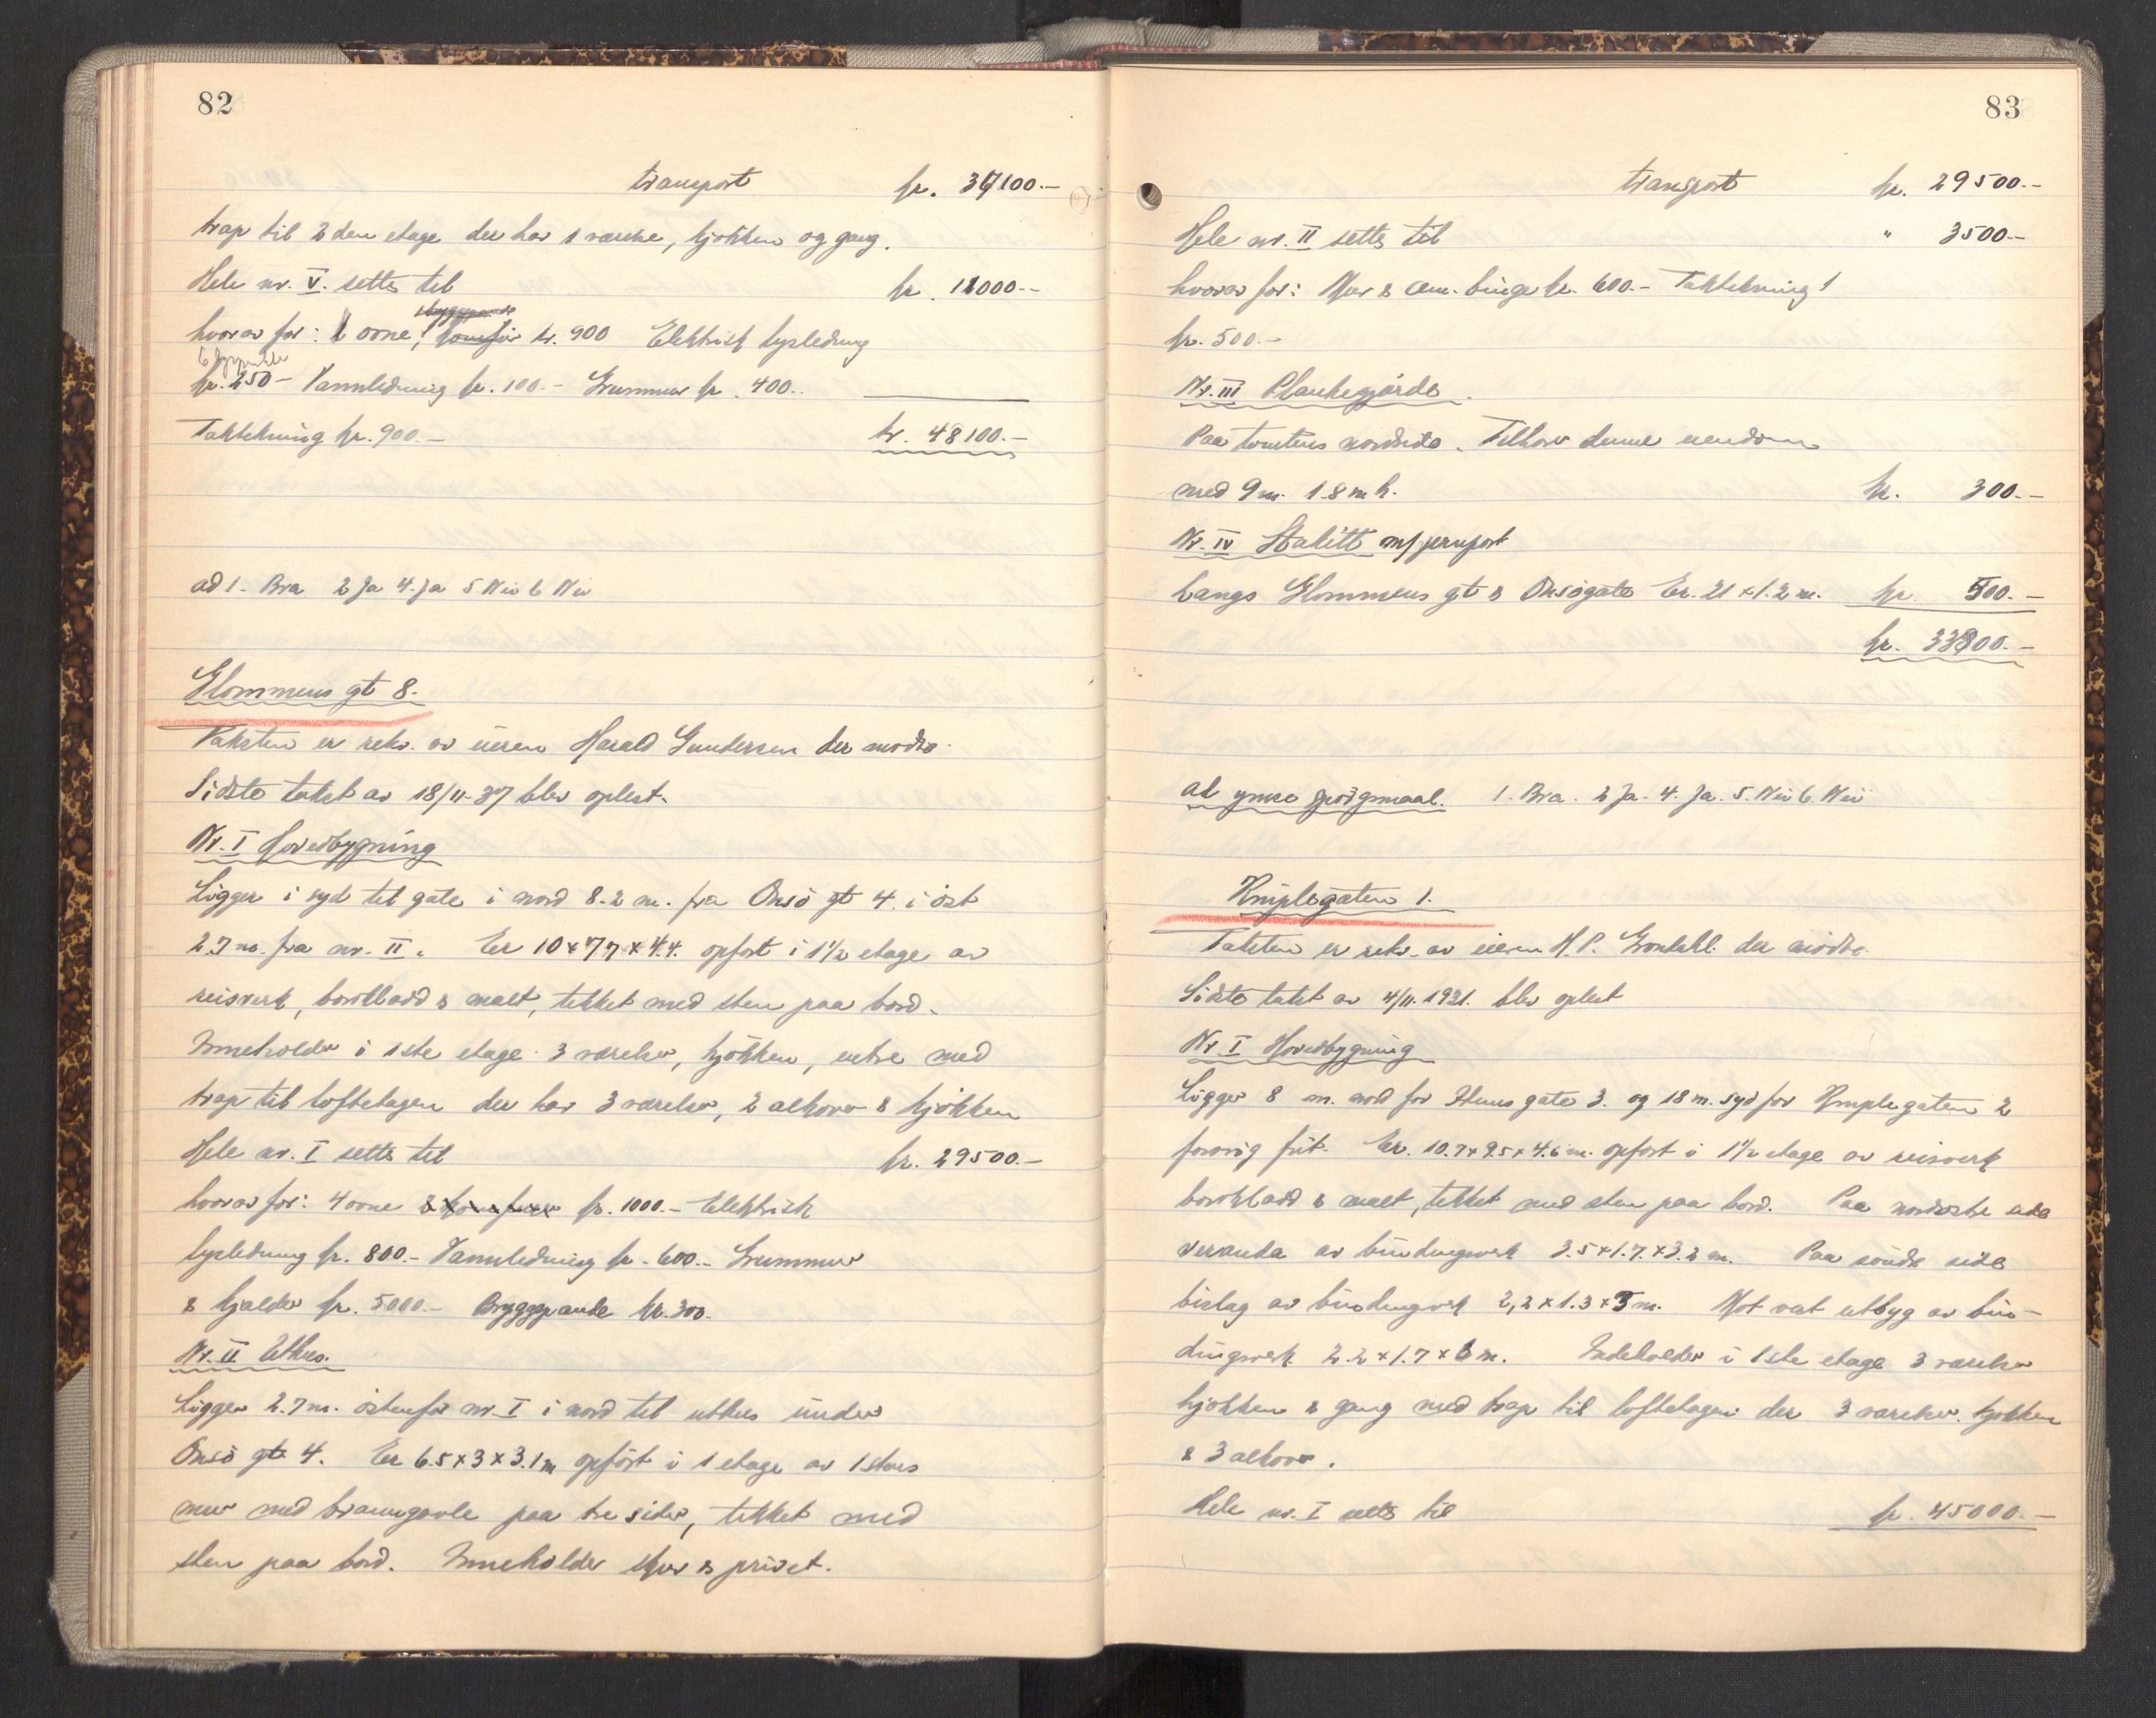 82
transport kr. 37100.-
trap til 2den etage der har 1 værelse, kjökken og gang.
Hele nr. V. settes til kr. 11000.-
hvorav for: 1 ovne, komfür kr. 900 Elektrisk lysledning
6 lyspunkter
kr. 250- Vannledning kr. 100.- Grunnmur kr. 400.-
Taktekning kr. 900.- kr. 48100.-
ad 1. Bra 2 Ja 4. Ja 5 Nei 6 Nei
Glommens gt 8.
Taksten er rekv. av eieren Harald Gundersen der mödte.
Sidste takst av 18/11-37 blev oplest.
Nr. I Hovedbygning
Ligger i syd til gate i nord 8.2 m. fra Onsö gt 4. i öst
2.7 m. fra nr. II. Er 10 x 7.7 x 4.4. opfört i 1 1/2 etage av
reisverk, bordkladd & malt, tekket med sten paa bord.
Inneholder i 1ste etage 3 værelser, kjökken, entre med
trap til loftetagen der har 3 værelser, 2 alkover & kjökken
Hele nr. I settes til kr. 29500.-
hvorav for: 4 ovne & komfurer kr. 1000.- Elektrisk
lysledning kr. 800.- Vannledning kr. 600.- Grunnmur
& kjelder kr. 5000.- Bryggepanne kr. 300.
Nr. II Uthus.
Ligger 2.7 m. östenfor nr. I i nord til uthus under
Onsö gt 4. Er 6.5 x 3 x 3.1 m opfört i 1 etage av 1 stens
mur med branngavle paa tre sider, tekket med
sten paa bord. Inneholder skur & privet.
83
transport kr. 29500.-
Hele nr. II settes til " 3500.-
hvorav for: Mur & cem. binge kr. 600.- Taktekning
kr. 500.-
Nr. III Plankegjærde.
Paa tomtens nordside. Tilhörer denne eiendom
med 9 m. 1.8 m h. kr. 300.-
Nr. IV Stakitt m/jernport
Langs Glommens gt & Onsögate Er. 21 x 1.2 m. kr. 500.-
kr. 33800.-
ad ymse spörgsmaal. 1. Bra. 2 Ja. 4. Ja. 5. Nei 6. Nei
Kniplegaten 1.
Taksten er rekv. av eieren H.P. Gröndahl der mödte.
Sidste takst av 4/11. 1921. blev oplest
Nr I Hovedbygning
Ligger 8 m. nord for gate 3. og 18 m. syd for Kniplegaten 2
forövrig frit. Er. 10.7 x 9.5 x 4.6 m. opfört i 1 1/2 etage av reisverk
bordkladd & malt, tekket med sten paa bord. Paa nordöstre side
veranda av bindingsverk 3.5 x 1.7 x 3.2 m. Paa söndre side
bislag av bindingsverk 2,2 x 1.3 x 3 m. Mot vest utbyg av bin-
dingsverk 2.2 x 1.7 x 6 m. Indeholder i 1ste etage 3 værelser
kjökken & gang med trap til loftetagen der 3 værelser. kjökken
& 3 alkover.
Hele nr. I settes til kr. 45000.-